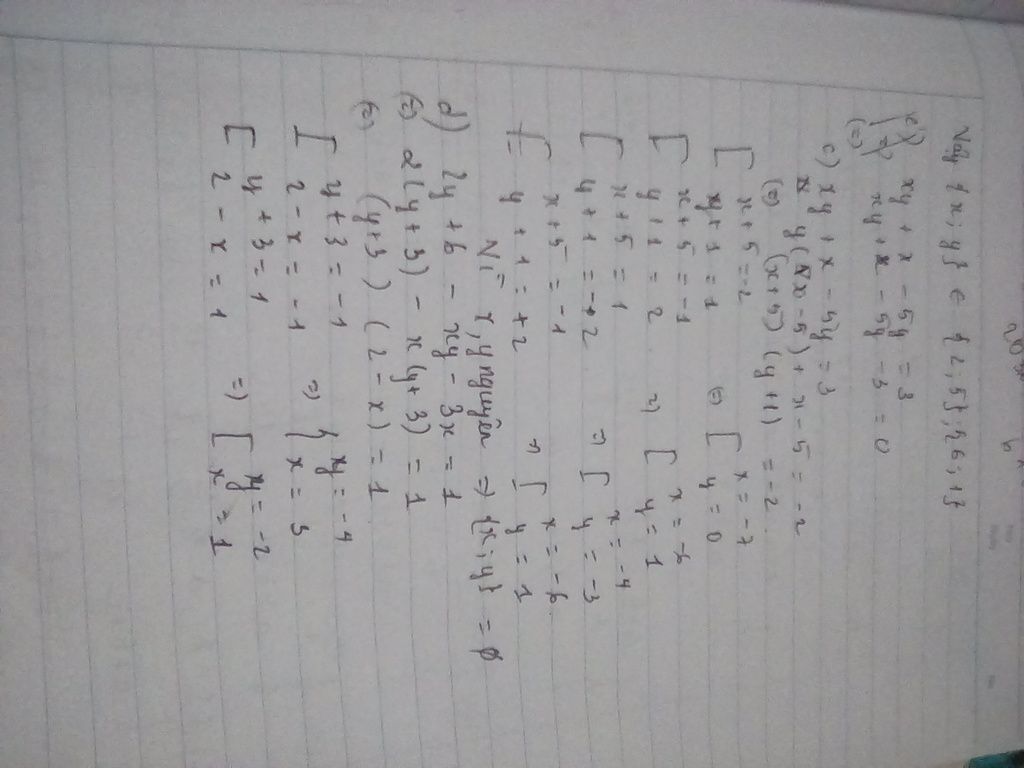 Vậy {x; y} ∈ {2; 5}; {6; 1}
c) xy + x - 5y = 3
(=) xy + x - 5y - 3 = 0
c) xy + x - 5y = 3
y(x - 5) + x - 5 = -2
(=) (x + 5) (y + 1) = -2
[ x + 5 = -2
y + 1 = 1 (=) [ x = -7
y = 0
[ x + 5 = -1
y + 1 = 2 =) [ x = -6
y = 1
[ x + 5 = 1
y + 1 = -2 =) [ x = -4
y = -3
[ x + 5 = -1
y + 1 = +2 =) [ x = -6
y = 1
Vì x, y nguyên => {x; y} = ∅
d) 2y + 6 - xy - 3x = 1
(=) 2(y + 3) - x(y + 3) = 1
(=) (y + 3) (2 - x) = 1
[ y + 3 = -1
2 - x = -1 =) { y = -4
x = 3
[ y + 3 = 1
2 - x = 1 =) [ y = -2
x = 1